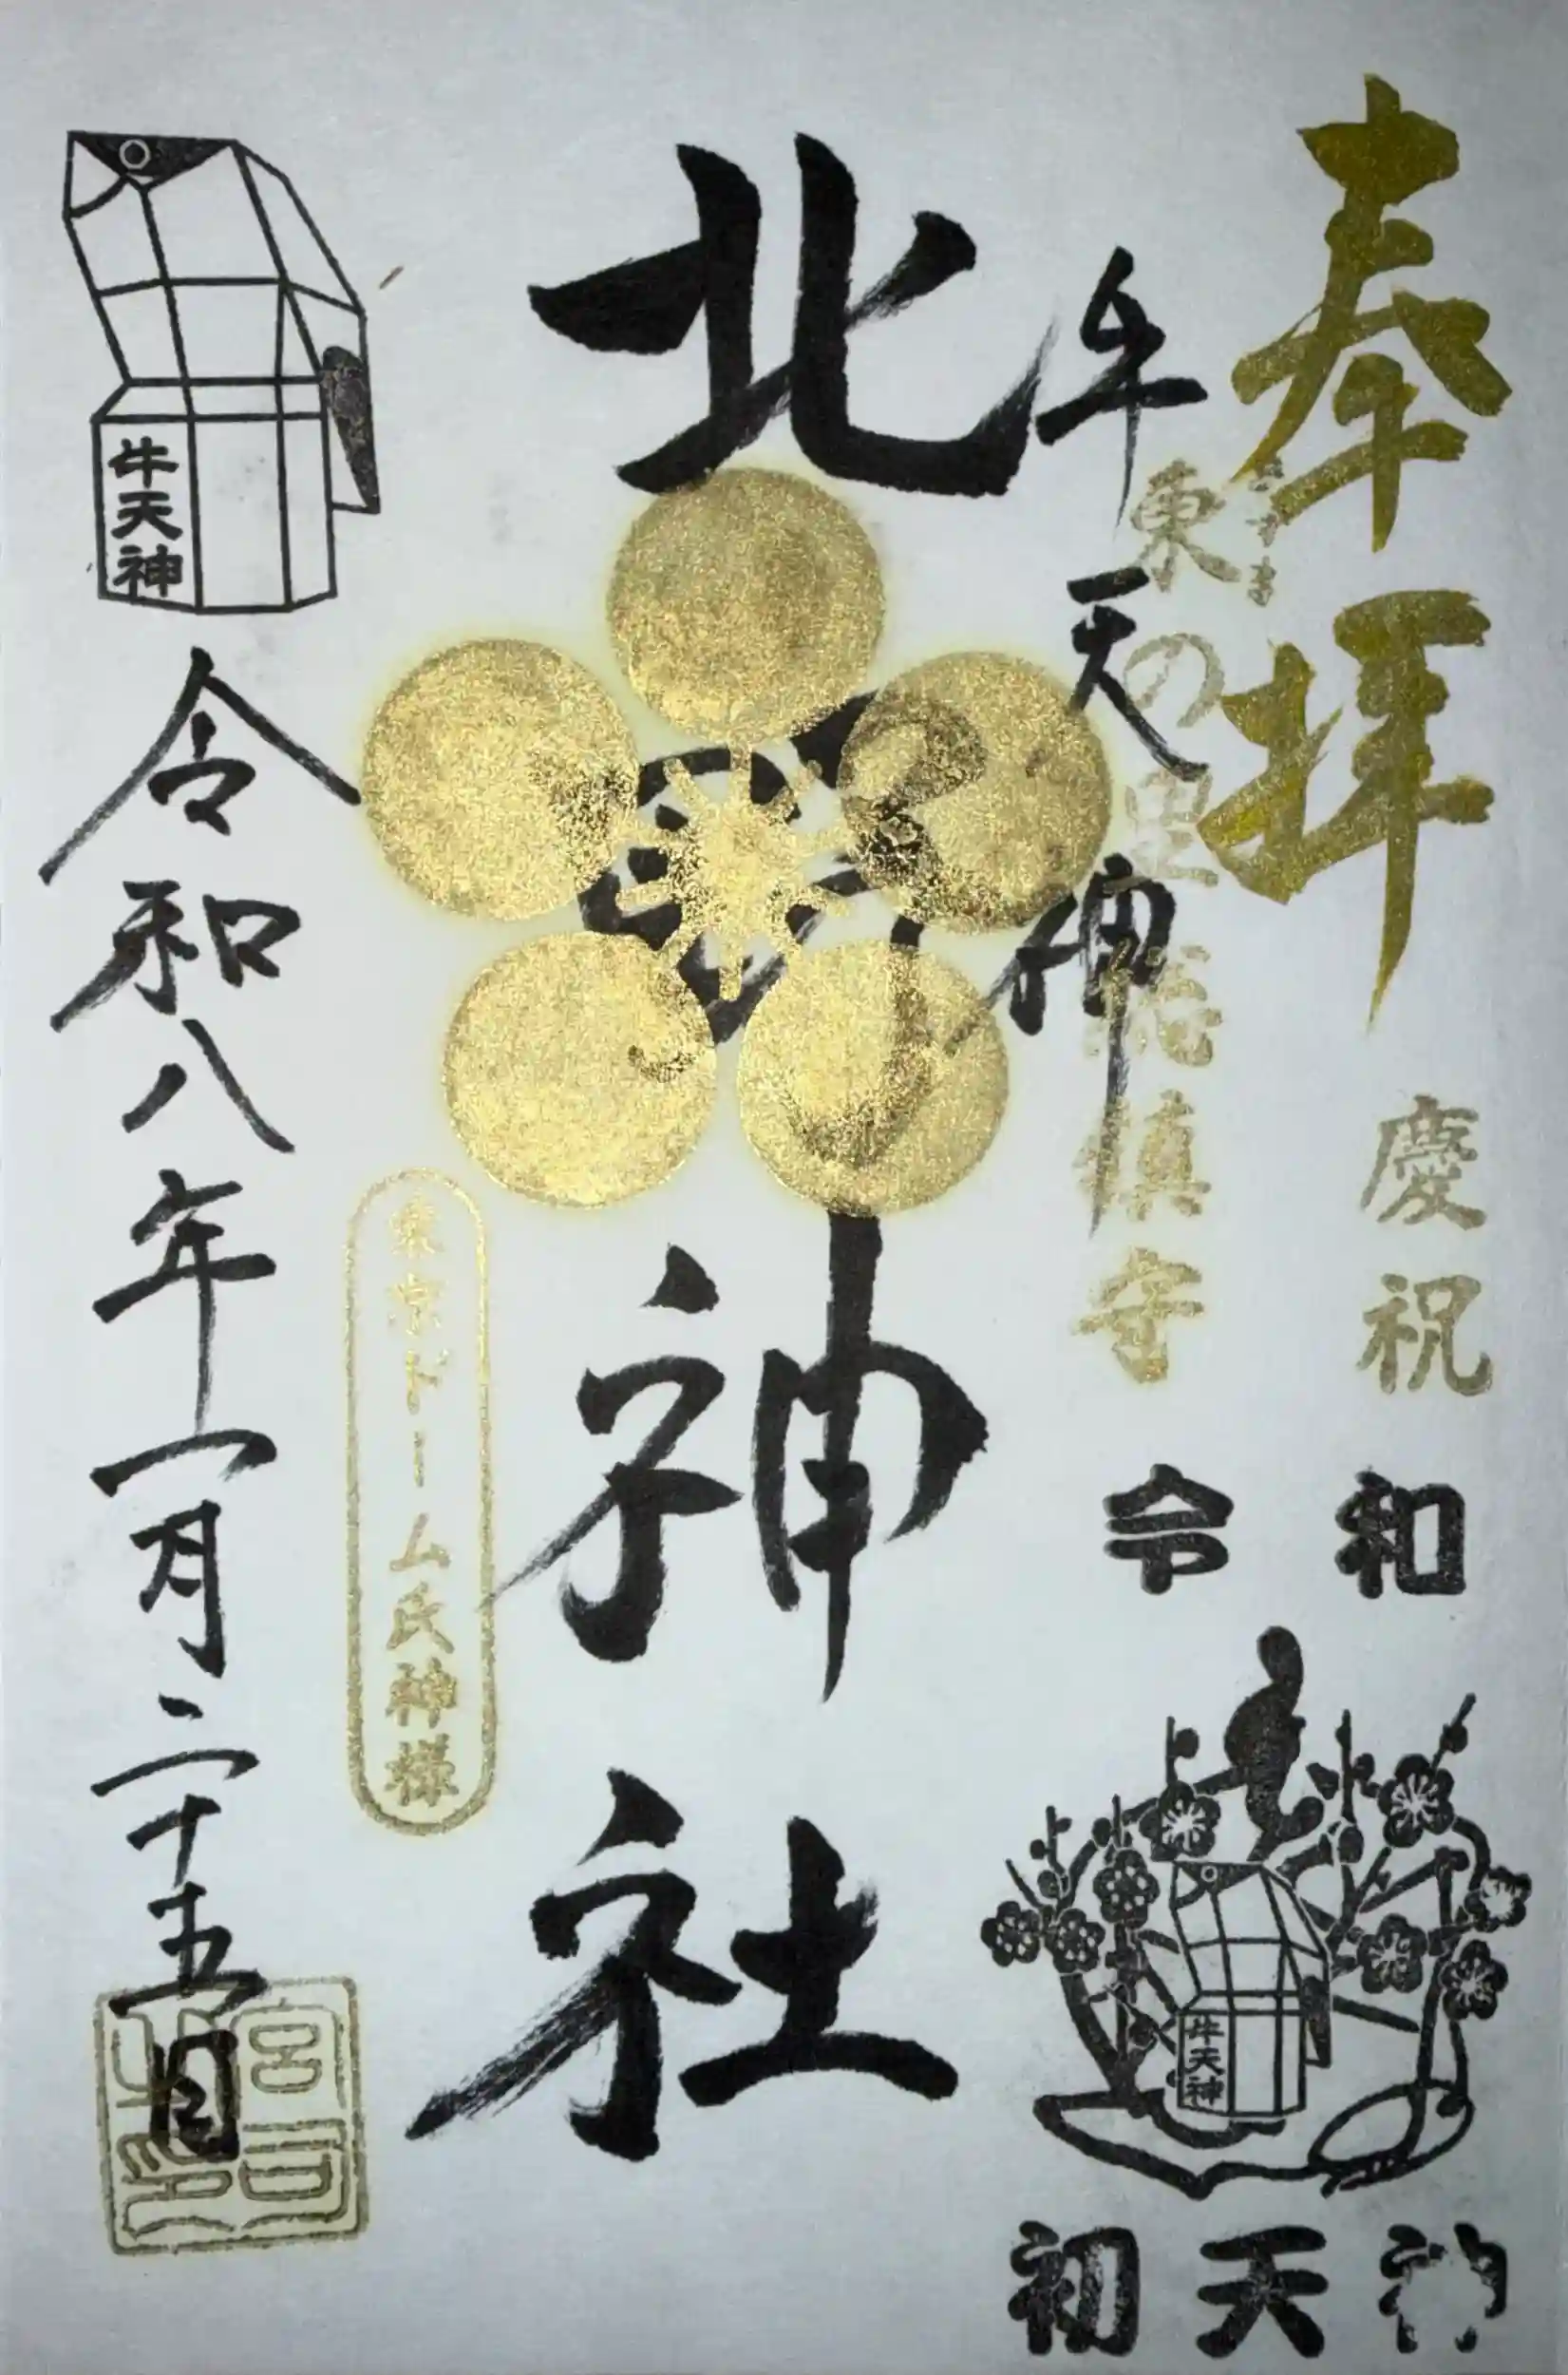 奉拝
慶祝
東の里総鎮守
牛天神
北野神社
東京ドーム氏神様
牛天神
令和八年一月二十五日
宮司之印
令和
牛天神
初天神